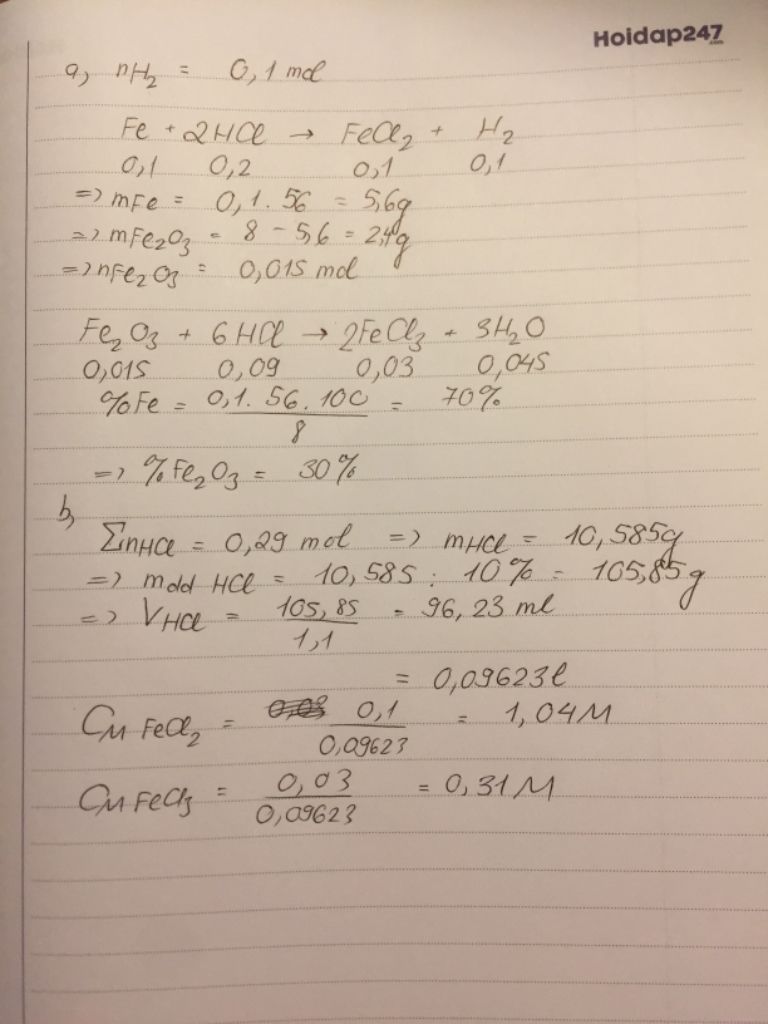 Hoidap247.com
a, nH2 = 0,1 mol
Fe + 2HCl → FeCl2 + H2
0,1 0,2 0,1 0,1
=> mFe = 0,1 . 56 = 5,6g
=> mFe2O3 = 8 - 5,6 = 2,4g
=> nFe2O3 = 0,015 mol
Fe2O3 + 6HCl → 2FeCl3 + 3H2O
0,015 0,09 0,03 0,045
%Fe = 0,1 . 56 . 100 = 70%
8
=> %Fe2O3 = 30%
b,
ΣnHCl = 0,29 mol => mHCl = 10,585g
=> mdd HCl = 10,585 : 10% = 105,85g
=> VHCl = 105,85 = 96,23 ml
1,1
= 0,09623l
CM FeCl2 = 0,1 = 1,04M
0,09623
CM FeCl3 = 0,03 = 0,31M
0,09623